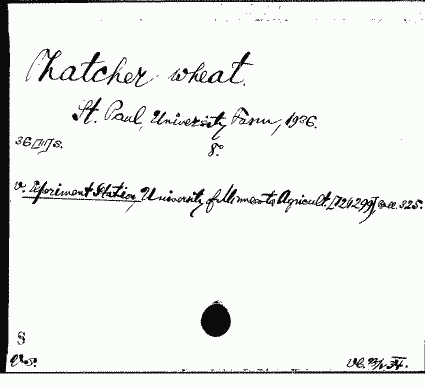 Thatcher wheat.
St. Paul, University Farm, 1936.
36 [1] s. 8°.
v. Experiment Station, University of Minnesota Agricult. [724299], 325.
S